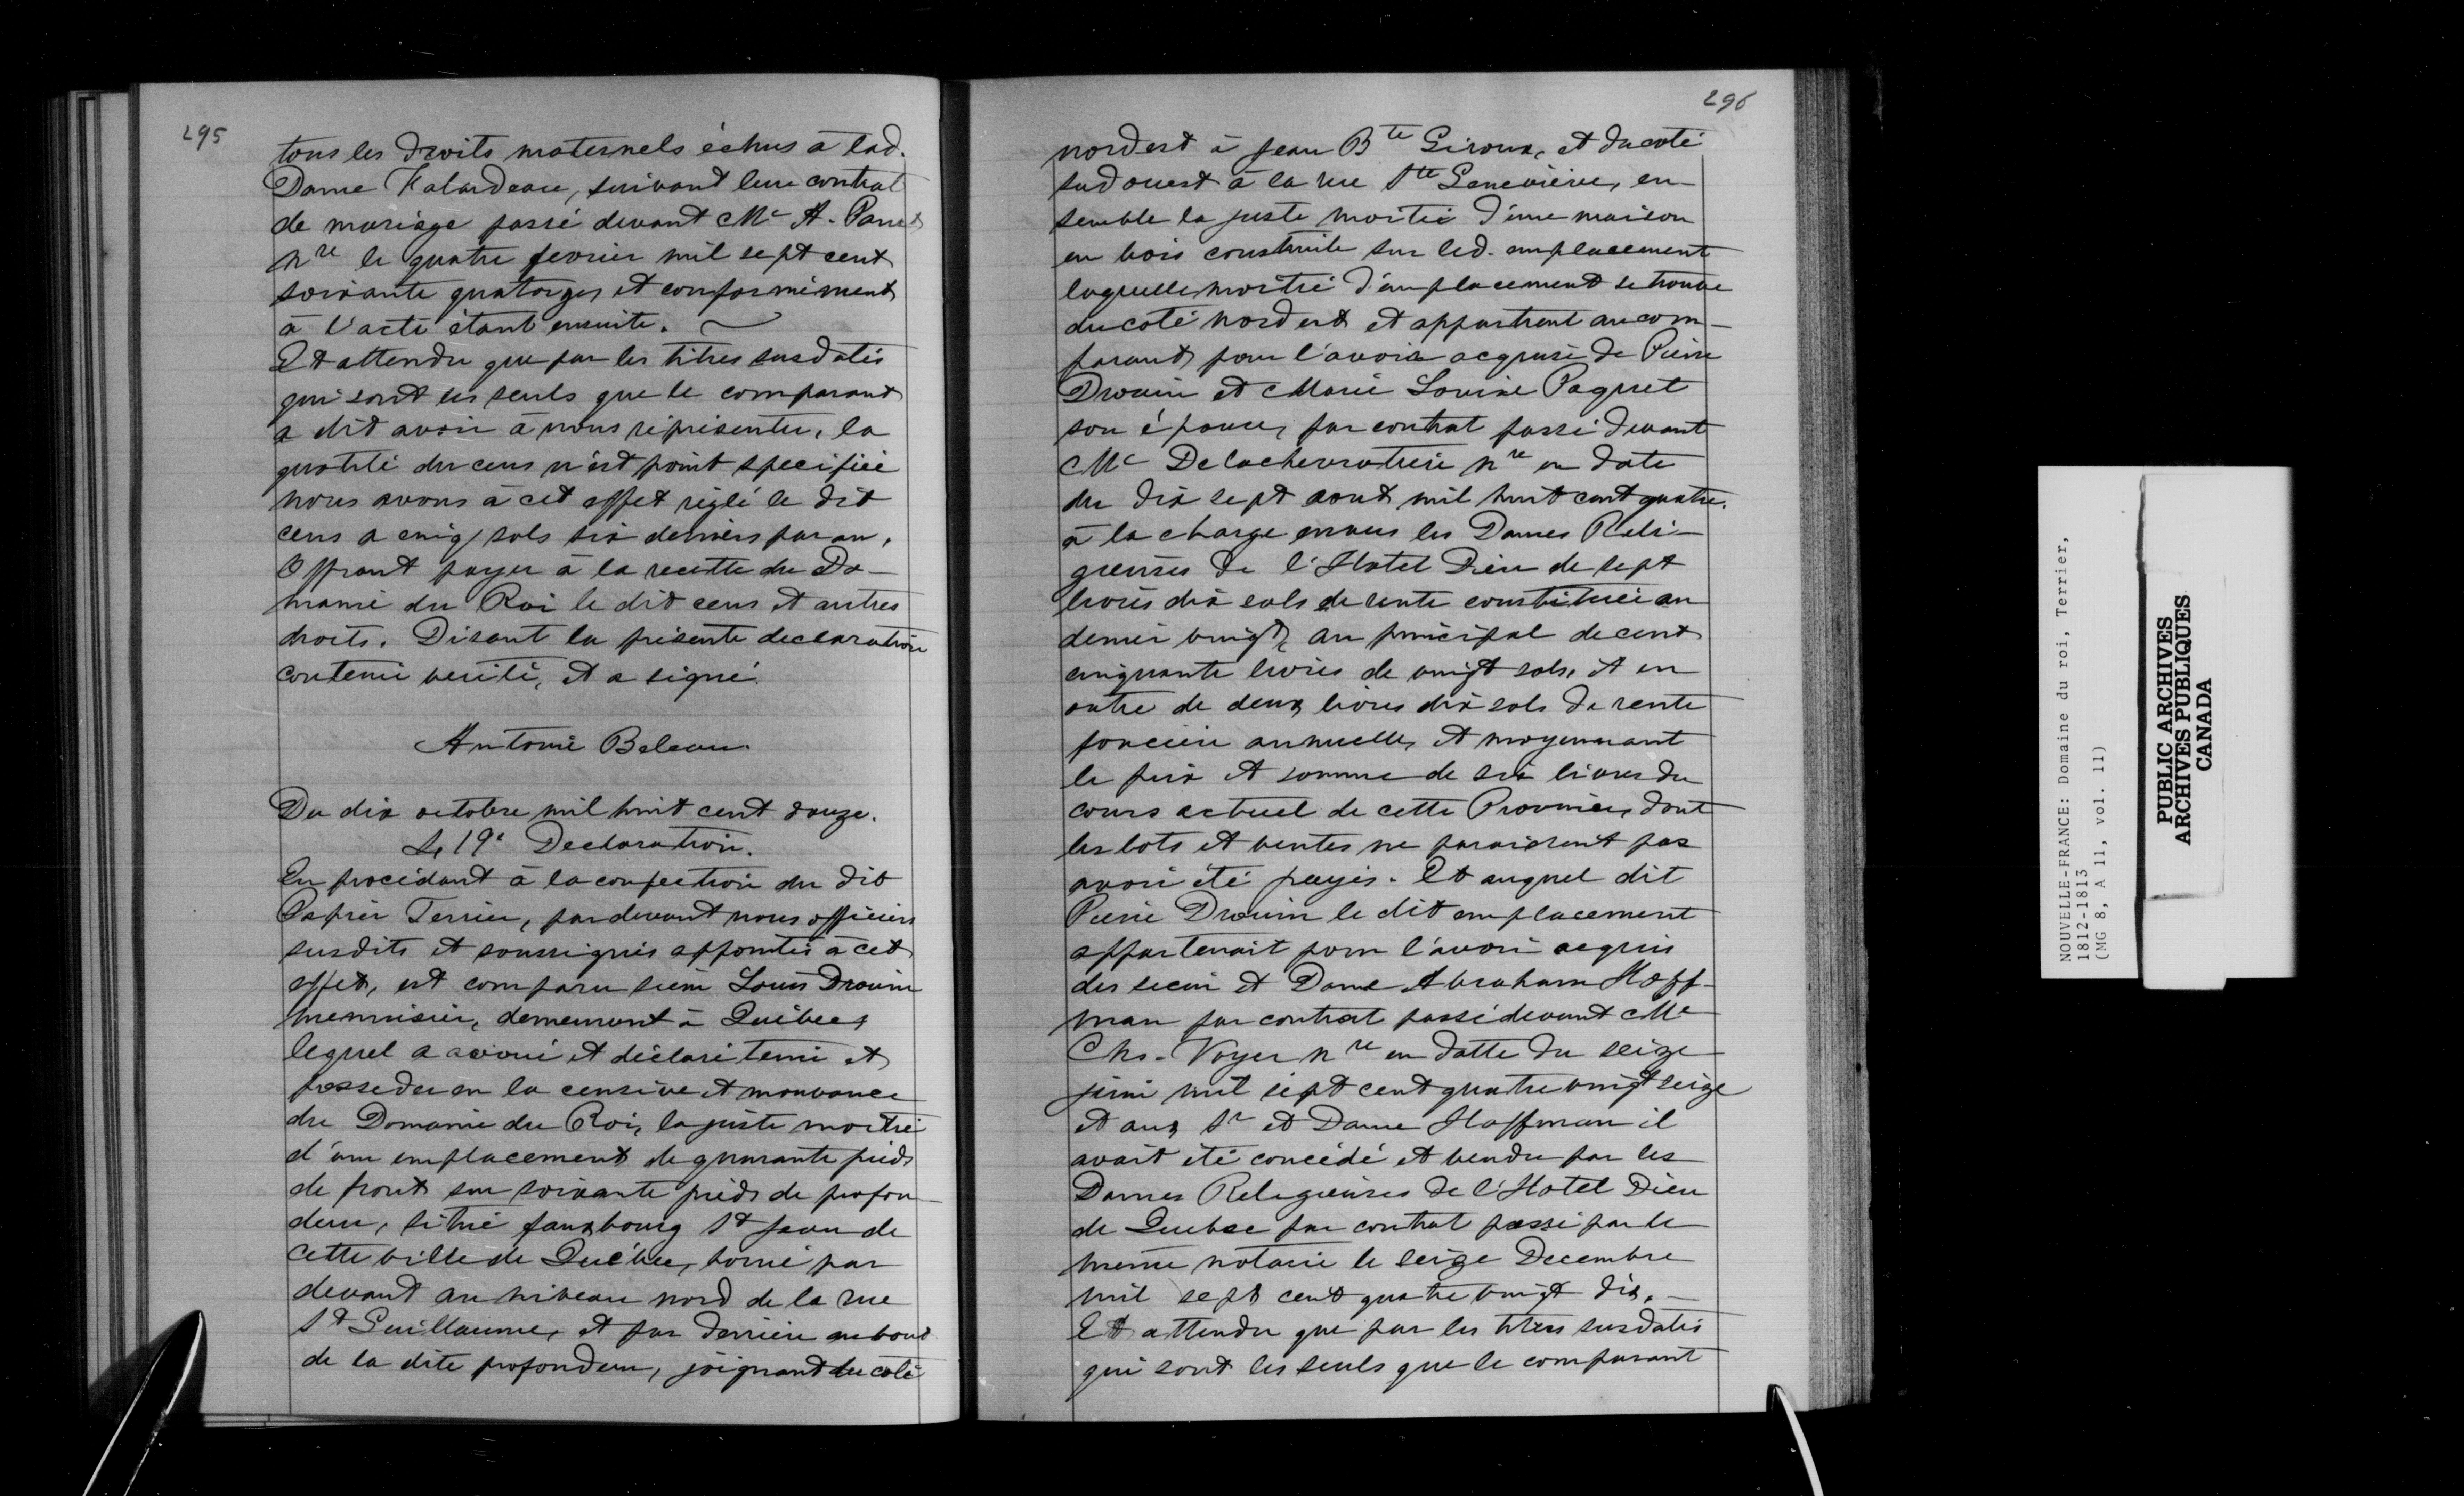 295
tous les droits maternels échus à lad.
Dame Falardeau, suivant leur contrat
de mariage passé devant Me A. Panet
nre le quatre fevrier mil sept cent
soixante quatorze, et conformément
à l'acte étant ensuite.
Et attendu que par les titres susdatés
qui sont les seuls que le comparant
a dit avoir à nous représenter, la
quotité du cens n'est point specifiée
nous avons à cet effet réglé le dit
cens a cinq sols six deniers par an,
Offrant payer à la recette du Do-
maine du Roi le dit cens et autres
droits. Disant la présente declaration
contenir verité, et a signé.
Antoine Beleau.
Du dix octobre mil huit cent douze.
4,19e Declaration.
En procédant à la confection du dit
Papier Terrier, pardevant nous officiers
susdits et soussignés appointés à cet
effet, est comparu sieur Louis Drouin
menuisier, demeurant à Québec,
lequel a avoué et déclaré tenir et
posseder en la censive et mouvance
du Domaine du Roi, la juste moitié
d'un emplacement de quarante pieds
de front sur soixante pieds de profon-
deur, situé fauxbourg St Jean de
cette ville de Québec, borné par
devant au niveau nord de la rue
St Guillaume, et par derriere au bout
de la dite profondeur, joignant du coté
296
nordest à Jean Bte Giroux, et du coté
sud ouest à la rue Ste Geneviève, en-
semble la juste moitié d'une maison
en bois construite sur led. emplacement
laquelle moitié d'emplacement se trouve
du coté nord est et appartient au com-
parant, pour l'avoir acquise de Pierre
Drouin et Marie Louise Paquet
son épouse, par contrat passé devant
Me Delachevrotiere nre en date
du dix sept aout mil huit cent quatre.
à la charge envers les Dames Reli-
gieuses de l'Hotel Dieu de sept
livres dix sols de rente constituée au
denier vingt, au principal de cent
cinquante livres de vingt sols, et en
outre de deux livres dix sols de rente
fonciere annuelle, et moyennant
le prix et somme de six livres du
cours actuel de cette Province, dont
les lots et ventes ne paroissent pas
avoir été payés. Et auquel dit
Pierre Drouin le dit emplacement
appartenait pour l'avoir acquis
des sieur et Dame Abraham Hoff-
man par contrat passé devant Me
Chs. Voyer nre en datte du seize
juin mil sept cent quatre vingt seize
et aux Sr et Dame Hoffman il
avait été concédé et vendu par les
Dames Religieuses de l'Hotel Dieu
de Quebec par contrat passé par le
meme notaire le seize Decembre
mil sept cent quatre vingt dix. —
Et attendu que par les titres susdatés
qui sont les seuls que le comparant
NOUVELLE-FRANCE: Domaine du roi, Terrier,
1812-1813
(MG 8, A 11, vol. 11)
PUBLIC ARCHIVES
ARCHIVES PUBLIQUES
CANADA